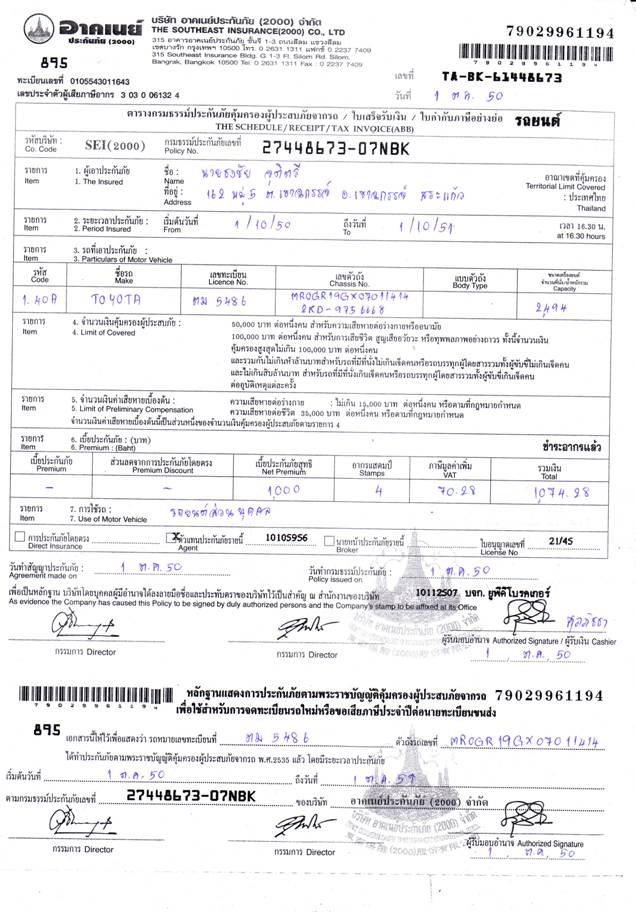 อาคเนย์
ประกันภัย (2000)
บริษัท อาคเนย์ประกันภัย (2000) จำกัด
THE SOUTHEAST INSURANCE(2000) CO., LTD
315 อาคารอาคเนย์ประกันภัย ชั้นจี 1-3 ถนนสีลม แขวงสีลม
เขตบางรัก กรุงเทพฯ 10500 โทร. 0 2631 1311 แฟกซ์ 0 2237 7409
315 Southeast Insurance Bldg. G 1-3 Fl. Silom Rd. Silom,
Bangrak, Bangkok 10500 Tel. 0 2631 1311 Fax : 0 2237 7409
79029961194
895
ทะเบียนเลขที่ 0105543011643
เลขประจำตัวผู้เสียภาษีอากร 3 03 0 06132 4
เลขที่ TA-BK-61448673
วันที่ 1 ต.ค. 50
ตารางกรมธรรม์ประกันภัยคุ้มครองผู้ประสบภัยจากรถ / ใบเสร็จรับเงิน / ใบกำกับภาษีอย่างย่อ รถยนต์
THE SCHEDULE/RECEIPT/TAX INVOICE(ABB)
รหัสบริษัท : Co. Code SEI(2000) กรมธรรม์ประกันภัยเลขที่ Policy No. 27448673-07NBK
รายการ Item 1. ผู้เอาประกันภัย 1. The Insured ชื่อ : Name นายธงชัย
ที่อยู่ : Address 162 หมู่ 5 ต.เขาฉกรรจ์ อ.เขาฉกรรจ์ สระแก้ว
อาณาเขตที่คุ้มครอง
Territorial Limit Covered
: ประเทศไทย
Thailand
รายการ Item 2. ระยะเวลาประกันภัย : 2. Period Insured เริ่มต้นวันที่ From 1/10/50 ถึงวันที่ To 1/10/51 เวลา 16.30 น. at 16.30 hours
รายการ Item 3. รถที่เอาประกันภัย : 3. Particulars of Motor Vehicle
รหัส Code ชื่อรถ Make เลขทะเบียน Licence No. เลขตัวถัง Chassis No. แบบตัวถัง Body Type Capacity
1.40A TOYOTA ตม 5486 MROGR19GX07011414 2,494
2KD-9756668
รายการ Item 4. จำนวนเงินคุ้มครองผู้ประสบภัย : 4. Limit of Covered
50,000 บาท ต่อหนึ่งคน สำหรับความเสียหายต่อร่างกายหรืออนามัย
100,000 บาท ต่อหนึ่งคน สำหรับการเสียชีวิต สูญเสียอวัยวะ หรือทุพพลภาพอย่างถาวร ทั้งนี้จำนวนเงิน
คุ้มครองสูงสุดไม่เกิน 100,000 บาท ต่อหนึ่งคน
และรวมกันไม่เกินห้าล้านบาทสำหรับรถที่มีที่นั่งไม่เกินเจ็ดคนหรือรถบรรทุกผู้โดยสารรวมทั้งผู้ขับขี่ไม่เกินเจ็ดคน
และไม่เกินสิบล้านบาท สำหรับรถที่มีที่นั่งเกินเจ็ดคนหรือรถบรรทุกผู้โดยสารรวมทั้งผู้ขับขี่เกินเจ็ดคน
ต่ออุบัติเหตุแต่ละครั้ง
รายการ Item 5. จำนวนเงินค่าเสียหายเบื้องต้น : 5. Limit of Preliminary Compensation
ความเสียหายต่อร่างกาย : ไม่เกิน 15,000 บาท ต่อหนึ่งคน หรือตามที่กฎหมายกำหนด
ความเสียหายต่อชีวิต 35,000 บาท ต่อหนึ่งคน หรือตามที่กฎหมายกำหนด
จำนวนเงินค่าเสียหายเบื้องต้นนี้เป็นส่วนหนึ่งของจำนวนเงินคุ้มครองผู้ประสบภัยตามรายการ 4
รายการ Item 6. เบี้ยประกันภัย : (บาท) 6. Premium : (Baht) ชำระอากรแล้ว
เบี้ยประกันภัย Premium ส่วนลดจากการประกันภัยโดยตรง Premium Discount เบี้ยประกันภัยสุทธิ Net Premium อากรแสตมป์ Stamps ภาษีมูลค่าเพิ่ม VAT รวมเงิน Total
– – 1,000 4 70.28 1,074.28
รายการ Item 7. การใช้รถ : 7. Use of Motor Vehicle รถยนต์ส่วนบุคคล
การประกันภัยโดยตรง Direct Insurance X ตัวแทนประกันภัยรายนี้ Agent 10105956 นายหน้าประกันภัยรายนี้ Broker ใบอนุญาตเลขที่ License No 21/45
วันทำสัญญาประกันภัย : Agreement made on 1 ต.ค. 50 วันทำกรมธรรม์ประกันภัย : Policy issued on 1 ต.ค. 50
เพื่อเป็นหลักฐาน บริษัทโดยบุคคลผู้มีอำนาจได้ลงลายมือชื่อและประทับตราของบริษัทไว้เป็นสำคัญ ณ สำนักงานของบริษัท 10112507 บจก. ยูพีดีโบรคเกอร์
As evidence the Company has caused this Policy to be signed by duly authorized persons and the Company's stamp to be affixed at its Office
กรรมการ Director กรรมการ Director ผู้รับมอบอำนาจ Authorized Signature / ผู้รับเงิน Cashier
1 ต.ค. 50
หลักฐานแสดงการประกันภัยตามพระราชบัญญัติคุ้มครองผู้ประสบภัยจากรถ 79029961194
เพื่อใช้สำหรับการจดทะเบียนรถใหม่หรือขอเสียภาษีประจำปีต่อนายทะเบียนขนส่ง
895 เอกสารนี้ให้ไว้เพื่อแสดงว่า รถหมายเลขทะเบียนที่ ตม 5486 ตัวถังรถเลขที่ MROGR19GX07011414
ได้ทำประกันภัยตามพระราชบัญญัติคุ้มครองผู้ประสบภัยจากรถ พ.ศ.2535 แล้ว โดยมีระยะเวลาประกันภัย
เริ่มต้นวันที่ 1 ต.ค. 50 ถึงวันที่ 1 ต.ค. 51
ตามกรมธรรม์ประกันภัยเลขที่ 27448673-07NBK ของบริษัท อาคเนย์ประกันภัย (2000) จำกัด
กรรมการ Director กรรมการ Director ผู้รับมอบอำนาจ Authorized Signature
1 ต.ค. 50